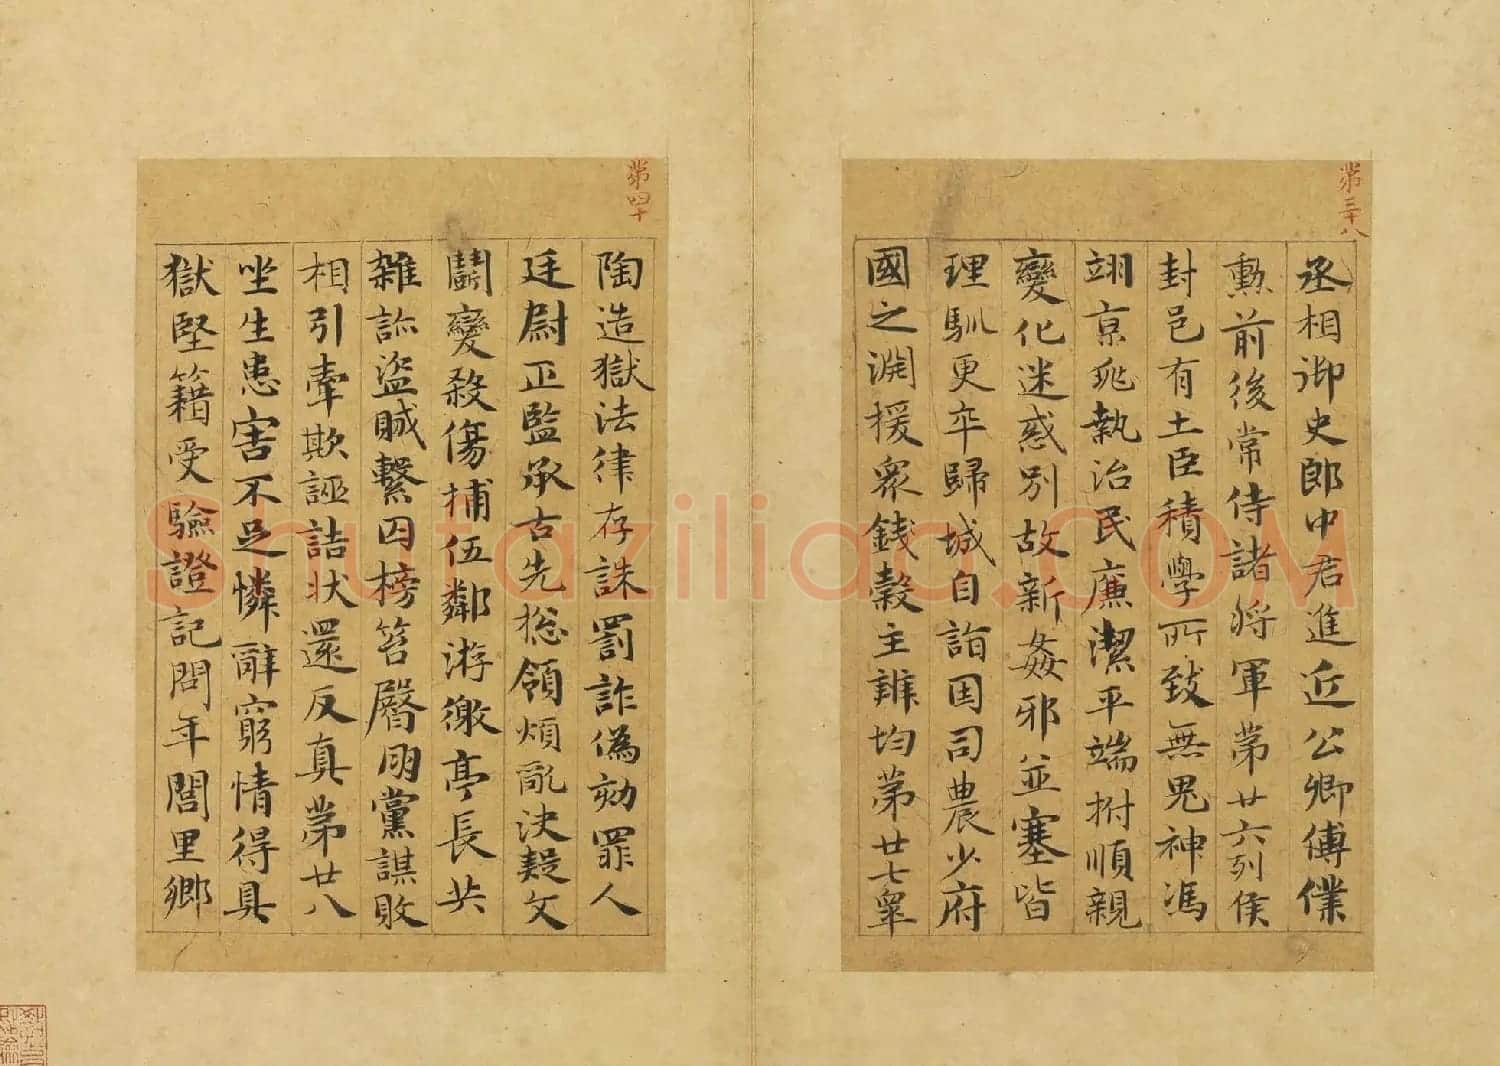 第三十八
丞相御史郎中君進近公卿傅僕
勳前後常侍諸將軍第廿六列侯
封邑有土臣積學所致無鬼神馮
翊京兆執治民廉潔平端拊順親
變化迷惑別故新姦邪並塞皆
理馴更卒歸城自詣因司農少府
國之淵援衆錢穀主辨均第廿七辠
第四十
陶造獄法律存誅罰詐偽劾罪人
廷尉正監承古先捴領煩亂決疑文
鬭變殺傷捕伍鄰游徼亭長共
雜診盜賊繫囚榜笞臀朋黨謀敗
相引牽欺誣詰狀還反真第廿八
坐生患害不足憐辭窮情得具
獄堅籍受驗證記問年閭里鄉
Shufaziliao.COM